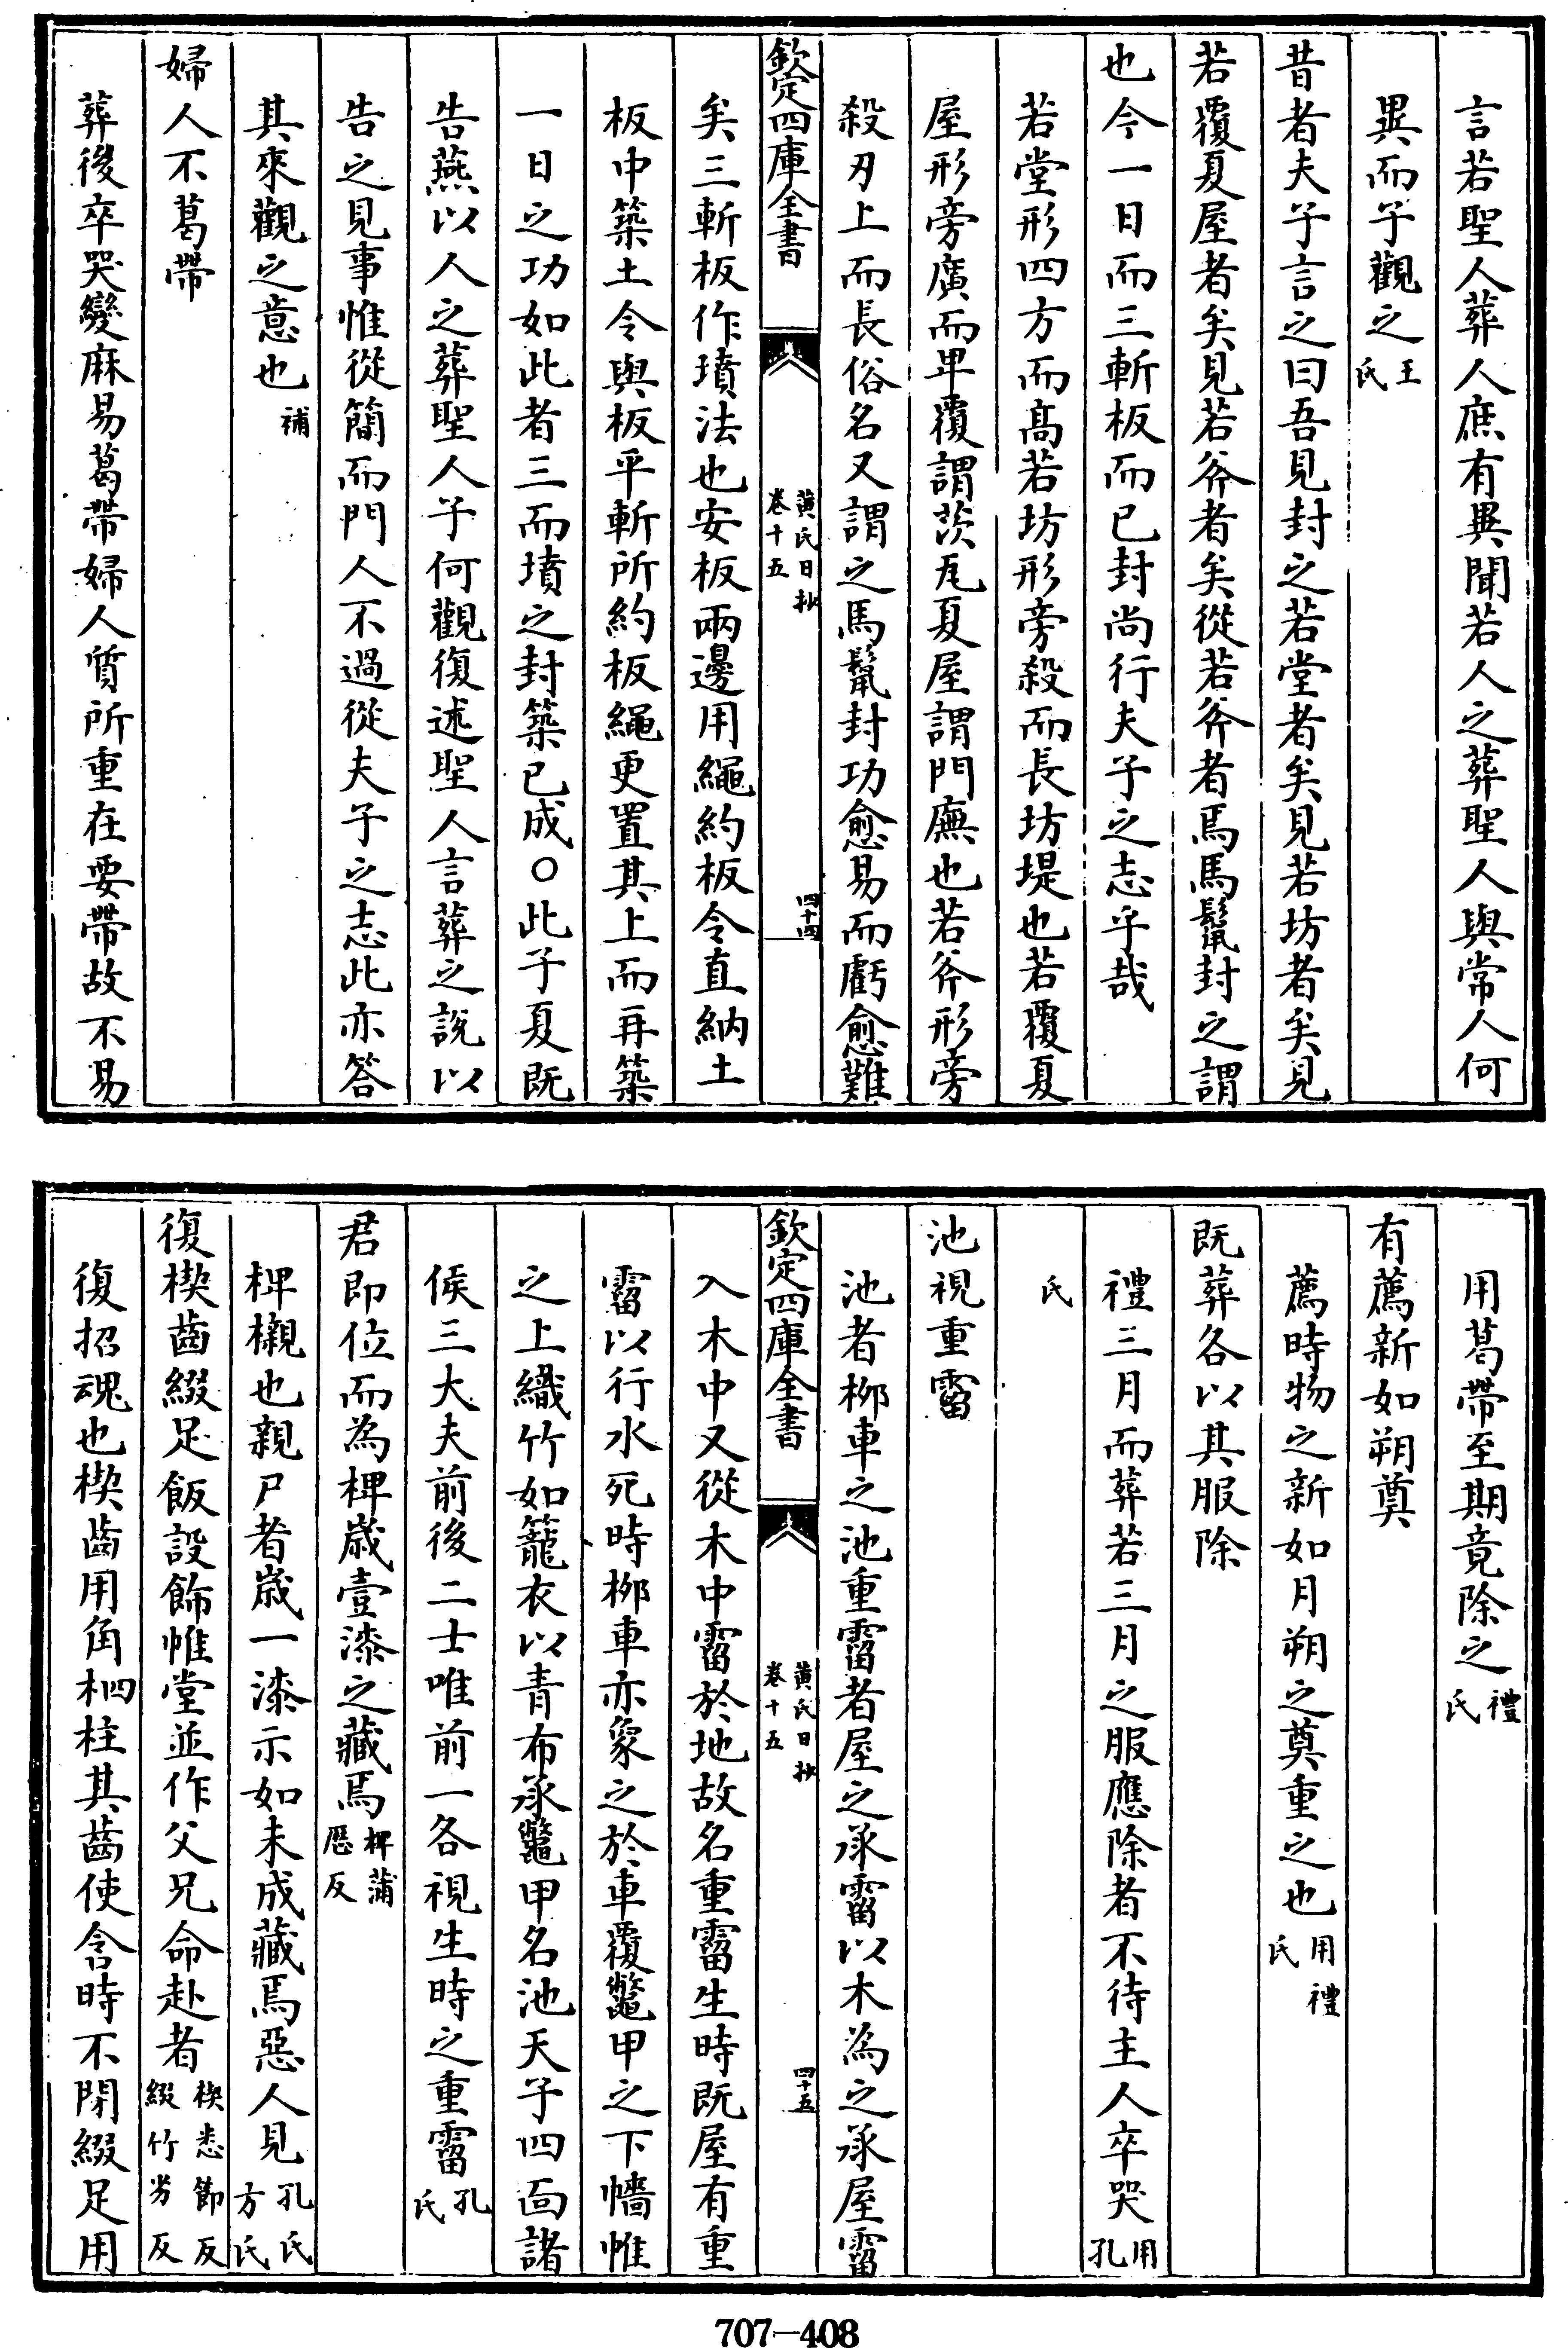 言若聖人葬人庶有異聞若人之葬聖人與常人何
異而子觀之王氏
昔者夫子言之曰吾見封之若堂者矣見若坊者矣見
若覆夏屋者矣見若斧者矣從若斧者焉馬鬛封之謂
也今一日而三斬板而已封尚行夫子之志乎哉
若堂形四方而髙若坊形旁殺而長坊堤也若覆夏
屋形旁廣而卑覆謂茨瓦夏屋謂門廡也若斧形旁
殺刃上而長俗名又謂之馬鬛封功愈易而虧愈難
欽定四庫全書
黄氏日抄
卷十五
四十四
矣三斬板作墳法也安板兩邊用繩約板令直納土
板中築土令與板平斬所約板繩更置其上而再築
一日之功如此者三而墳之封築已成○此子夏既
告燕以人之葬聖人子何觀復述聖人言葬之說以
告之見事惟從簡而門人不過從夫子之志此亦答
其來觀之意也補
婦人不葛帶
葬後卒哭變麻易葛帶婦人質所重在要帶故不易
用葛帶至期竟除之禮氏
有薦新如朔奠
薦時物之新如月朔之奠重之也用禮氏
既葬各以其服除
禮三月而葬若三月之服應除者不待主人卒哭用孔
氏
池視重霤
池者柳車之池重霤者屋之承霤以木為之承屋霤
欽定四庫全書
黄氏日抄
卷十五
四十五
入木中又從木中霤於地故名重霤生時既屋有重
霤以行水死時柳車亦象之於車覆鼈甲之下牆帷
之上織竹如籠衣以青布承鼈甲名池天子四面諸
侯三大夫前後二士唯前一各視生時之重霤孔氏
君即位而為椑歲壹漆之藏焉椑蒲厯反
椑櫬也親尸者歲一漆示如未成藏焉惡人見孔氏方氏
復楔齒綴足飯設飾帷堂並作父兄命赴者楔悉節反綴竹劣反
復招魂也楔齒用角柶柱其齒使含時不閉綴足用
707—408